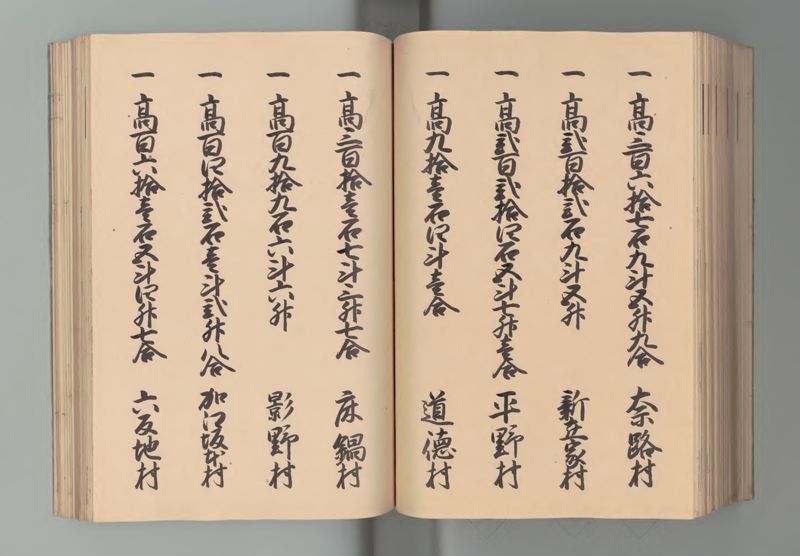 一 高三百六拾七石九斗五升九合 奈路村
一 高弐百拾弐石九斗五升 新在家村
一 高弐百弐拾四石五斗七升壱合 平野村
一 高九拾壱石四斗壱合 道徳村
一 高三百拾壱石七斗三升七合 床鍋村
一 高百九拾九石六斗六升 影野村
一 高百四拾弐石壱斗弐升八合 加江坂本村
一 高百六拾壱石五斗四升七合 六反地村